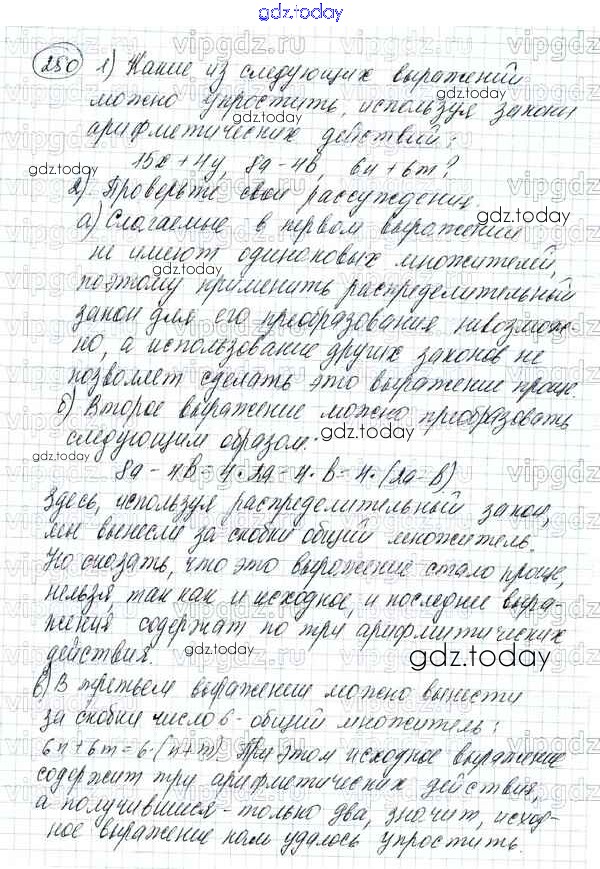 gdz.today
280 1) Какие из следующих выражений
можно упростить, используя законы
арифметических действий:
15x + 4y, 8a - 4b, 6n + 6m?
2) Проверьте свои рассуждения.
а) Слагаемые в первом выражении
не имеют одинаковых множителей,
поэтому применить распределительный
закон для его преобразования невозмож-
но, а использование других законов не
позволяет сделать это выражение проще.
б) Второе выражение можно преобразовать
следующим образом:
8a - 4b = 4 · 2a - 4 · b = 4 · (2a - b)
Здесь, используя распределительный закон,
мы вынесли за скобки общий множитель.
Но сказать, что это выражение стало проще,
нельзя, так как и исходное, и последнее выра-
жения содержат по три арифметических
действия.
в) В третьем выражении можно вынести
за скобки число 6 - общий множитель:
6n + 6m = 6 · (n + m). При этом исходное выражение
содержит три арифметических действия,
а получившиеся - только два, значит, исход-
ное выражение нам удалось упростить.